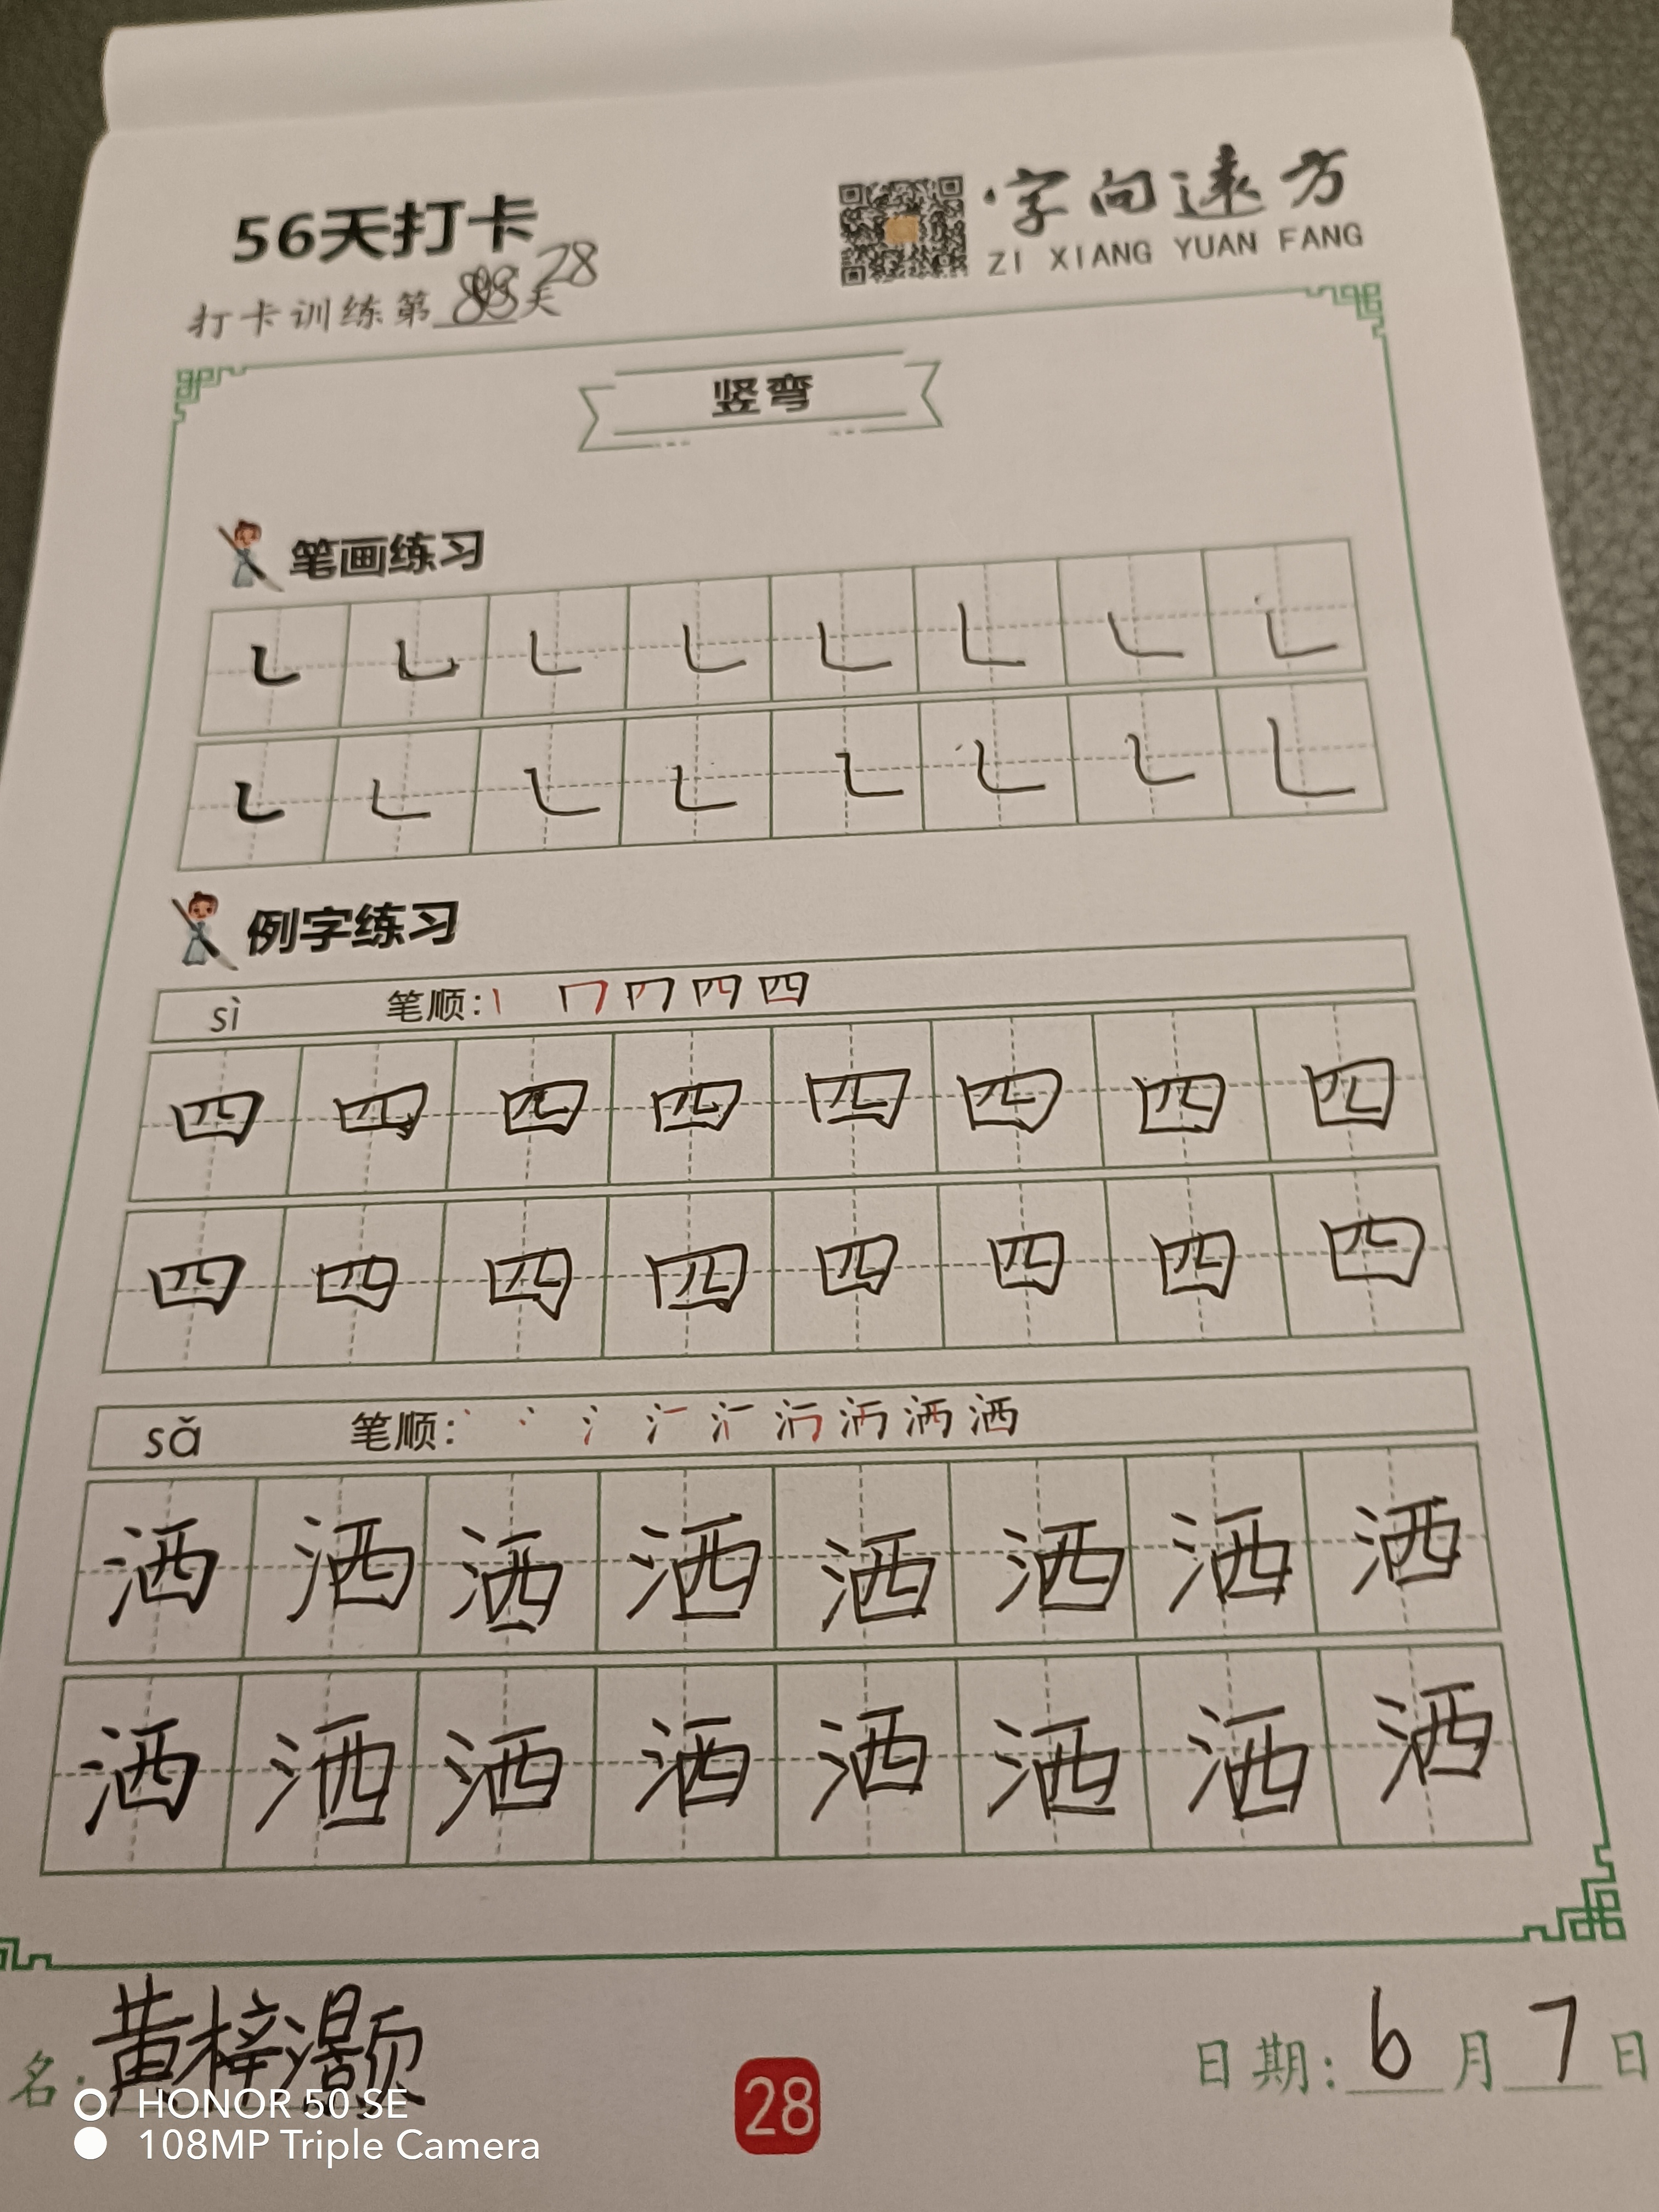 56天打卡
打卡训练第 天 28
·字向远方
ZI XIANG YUAN FANG
竖弯
笔画练习
㇄ ㇄ ㇄ ㇄ ㇄ ㇄ ㇄ ㇄
㇄ ㇄ ㇄ ㇄ ㇄ ㇄ ㇄ ㇄
例字练习
sì 笔顺: 四
四 四 四 四 四 四 四 四
四 四 四 四 四 四 四 四
sǎ 笔顺: 洒
洒 洒 洒 洒 洒 洒 洒 洒
洒 洒 洒 洒 洒 洒 洒 洒
名: 黄梓灏
日期: 6 月 7 日
28
HONOR 50 SE
108MP Triple Camera